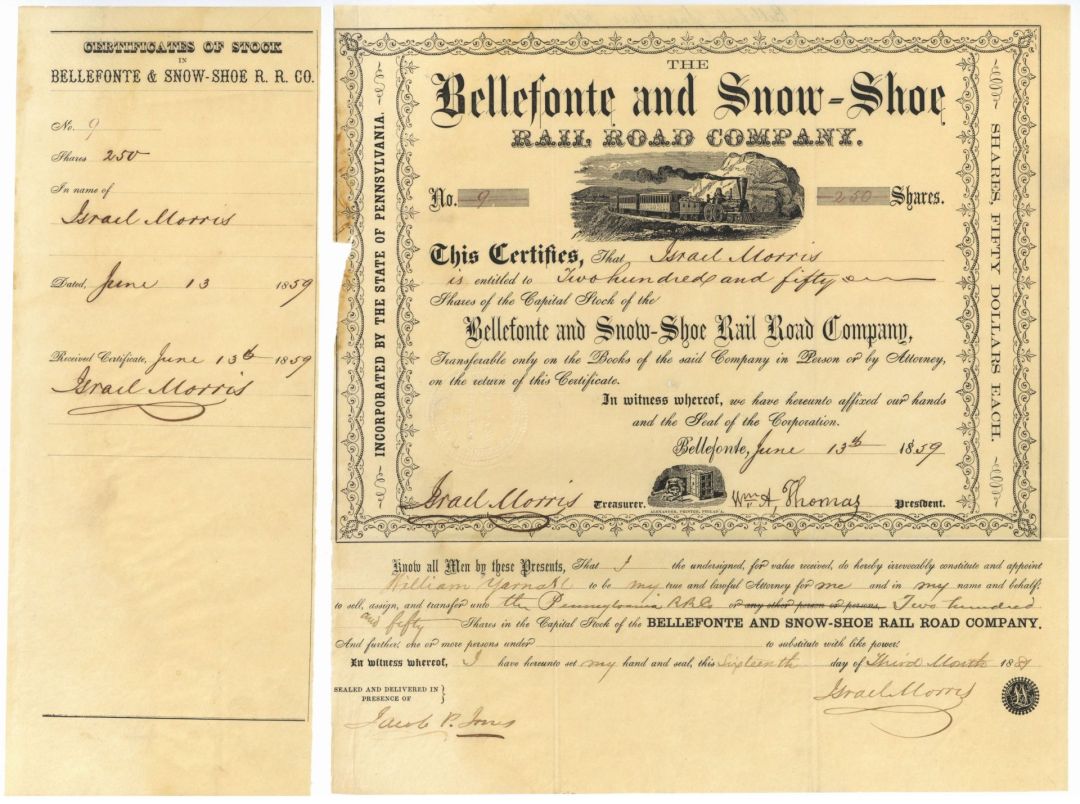 CERTIFICATES OF STOCK
IN
BELLEFONTE & SNOW-SHOE R. R. CO.
No. 9
Shares 250
In name of
Israel Morris
Dated, June 13 1859
Received Certificate, June 13th 1859
Israel Morris
INCORPORATED BY THE STATE OF PENNSYLVANIA.
THE
Bellefonte and Snow-Shoe
RAIL ROAD COMPANY.
No. 9 250 Shares.
This Certifies, That Israel Morris
is entitled to Two hundred and fifty
Shares of the Capital Stock of the
Bellefonte and Snow-Shoe Rail Road Company,
Transferable only on the Books of the said Company in Person or by Attorney,
on the return of this Certificate.
In witness whereof, we have hereunto affixed our hands
and the Seal of the Corporation.
Bellefonte, June 13th 1859
Israel Morris Treasurer. Wm A, Thomas President.
ALEXANDER, PRINTER, PHILAD'A.
SHARES, FIFTY DOLLARS EACH.
Know all Men by these Presents, That I the undersigned, for value received, do hereby irrevocably constitute and appoint
William Yarnall to be my true and lawful Attorney for me and in my name and behalf;
to sell, assign, and transfer unto the Pennsylvania R.R.Co or any other person or persons, Two hundred
and fifty Shares in the Capital Stock of the BELLEFONTE AND SNOW-SHOE RAIL ROAD COMPANY.
And further, one or more persons under to substitute with like power.
In witness whereof, I have hereunto set my hand and seal, this Sixteenth day of Third Month 1881
SEALED AND DELIVERED IN
PRESENCE OF
Israel Morris
Jacob P. Jones